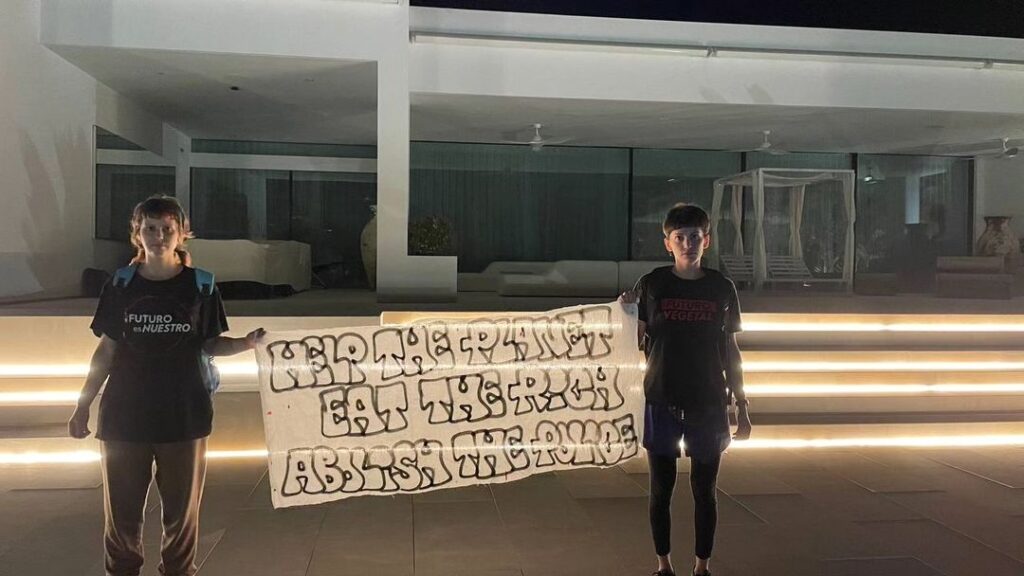 FUTURO
ES NUESTRO
FUTURO
VEGETAL
HELP THE PLANET
EAT THE RICH
ABOLISH THE POLICE